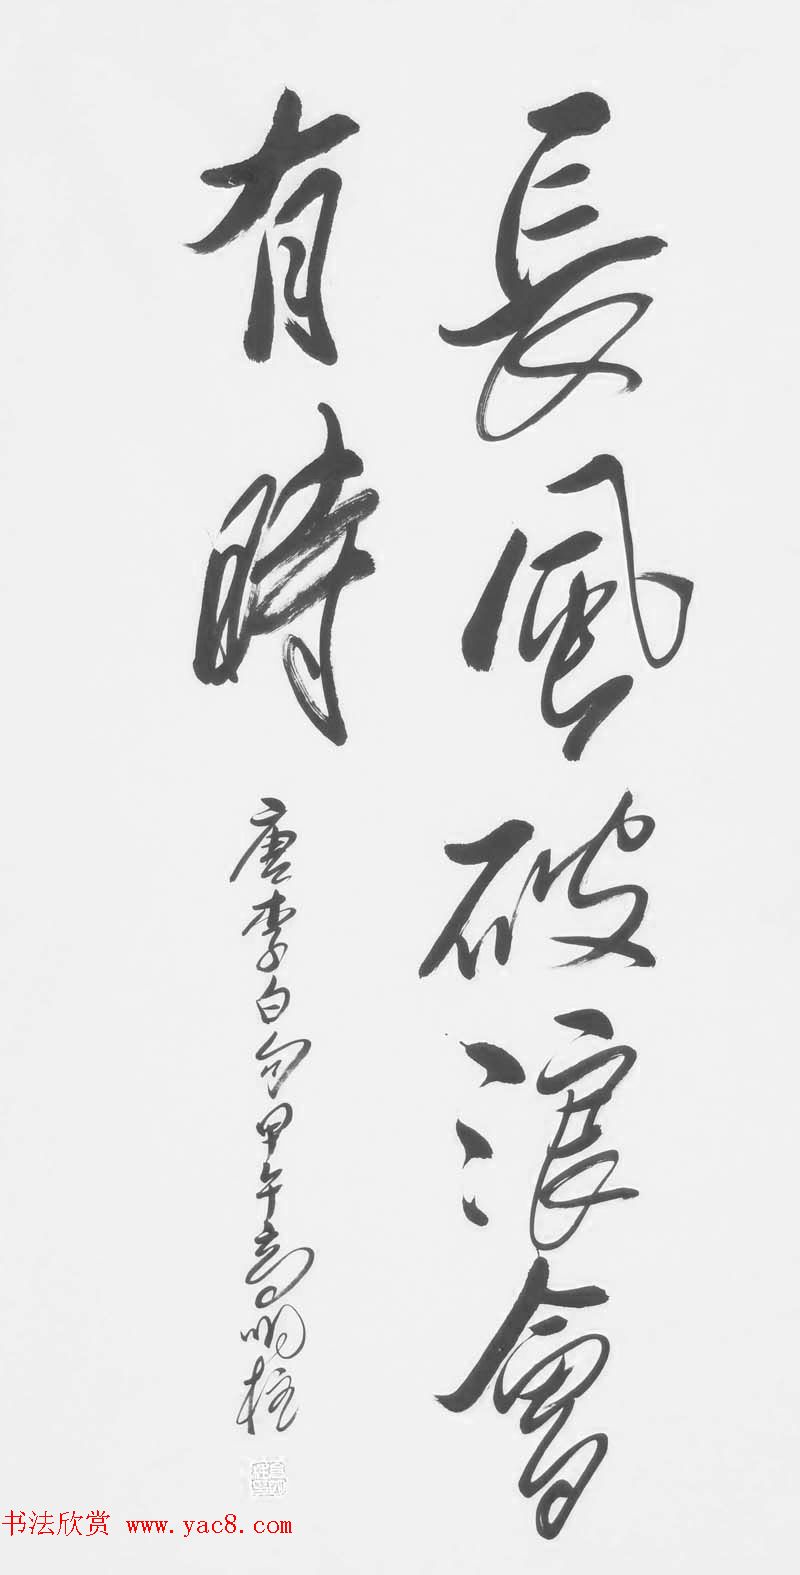 長風破浪會
有時
唐李白句甲午高明柱
书法欣赏 www.yac8.com